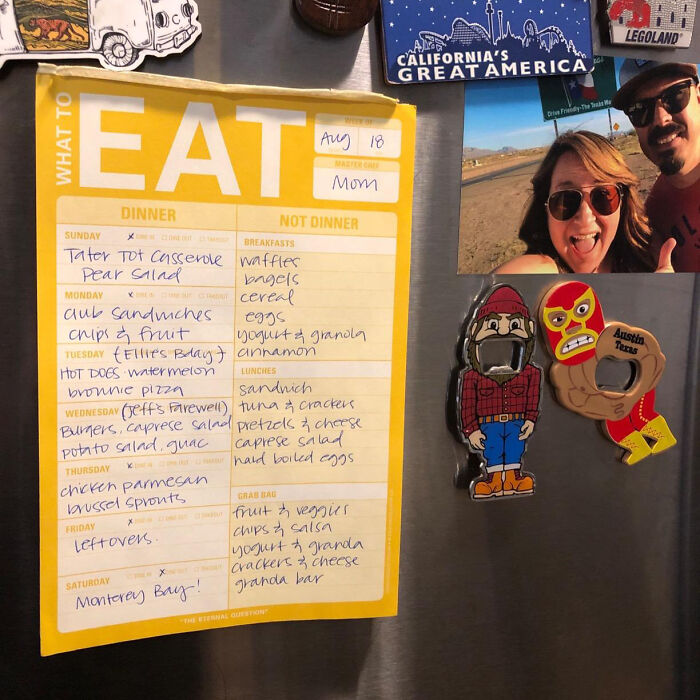 CALIFORNIA'S
GREAT AMERICA
LEGOLAND
Drive Friendly-The Texas
WHAT TO EAT
WEEK OF
Aug 18
MASTER CHEF
Mom
DINNER
NOT DINNER
SUNDAY x DINE IN □ DINE OUT □ TAKEOUT
Tater Tot Casserole
Pear Salad
MONDAY x DINE IN □ DINE OUT □ TAKEOUT
club sandwiches
chips & fruit
TUESDAY (Ellie's Bday)
HOT DOGS · watermelon
brownie pizza
WEDNESDAY (Jeff's Farewell)
Burgers, caprese salad
potato salad, guac
THURSDAY x DINE IN □ DINE OUT □ TAKEOUT
chicken parmesan
brussel sprouts
FRIDAY x DINE IN □ DINE OUT □ TAKEOUT
leftovers.
SATURDAY □ DINE IN x DINE OUT □ TAKEOUT
Monterey Bay!
BREAKFASTS
waffles
bagels
cereal
eggs
yogurt & granola
cinnamon
LUNCHES
sandwich
tuna & crackers
pretzels & cheese
caprese salad
hard boiled eggs
GRAB BAG
fruit & veggies
chips & salsa
yogurt & granola
crackers & cheese
granola bar
"THE ETERNAL QUESTION"
Austin
Texas